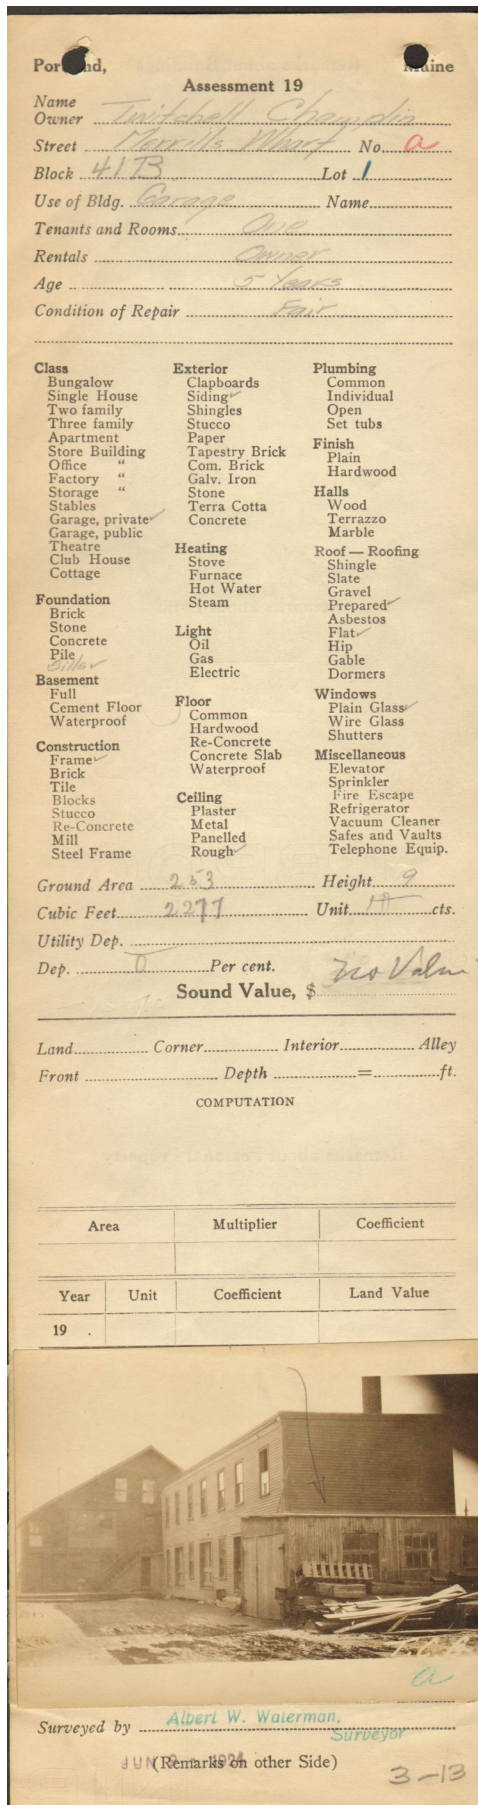 Portland, Maine
Assessment 19
Name
Owner Twitchell Champlin
Street Merrills Wharf No. a
Block 41B Lot 1
Use of Bldg. Garage Name
Tenants and Rooms One
Rentals Owner
Age 5 Years
Condition of Repair Fair
Class
Bungalow
Single House
Two family
Three family
Apartment
Store Building
Office "
Factory "
Storage "
Stables
Garage, private ✓
Garage, public
Theatre
Club House
Cottage
Foundation
Brick
Stone
Concrete
Pile
Sills ✓
Basement
Full
Cement Floor
Waterproof
Construction
Frame ✓
Brick
Tile
Blocks
Stucco
Re-Concrete
Mill
Steel Frame
Exterior
Clapboards
Siding ✓
Shingles
Stucco
Paper
Tapestry Brick
Com. Brick
Galv. Iron
Stone
Terra Cotta
Concrete
Heating
Stove
Furnace
Hot Water
Steam
Light
Oil
Gas
Electric
Floor
Common
Hardwood
Re-Concrete
Concrete Slab
Waterproof
Ceiling
Plaster
Metal
Panelled
Rough ✓
Plumbing
Common
Individual
Open
Set tubs
Finish
Plain
Hardwood
Halls
Wood
Terrazzo
Marble
Roof — Roofing
Shingle
Slate
Gravel
Prepared ✓
Asbestos
Flat ✓
Hip
Gable
Dormers
Windows
Plain Glass ✓
Wire Glass
Shutters
Miscellaneous
Elevator
Sprinkler
Fire Escape
Refrigerator
Vacuum Cleaner
Safes and Vaults
Telephone Equip.
Ground Area 253 Height 9
Cubic Feet 2277 Unit 10 cts.
Utility Dep.
Dep. 0 Per cent.
Sound Value, $ No Value
Land Corner Interior Alley
Front Depth = ft.
COMPUTATION
Area Multiplier Coefficient
Year Unit Coefficient Land Value
19 .
a
Surveyed by Albert W. Walerman,
Surveyor
JUN 1924
(Remarks on other Side)
3-13